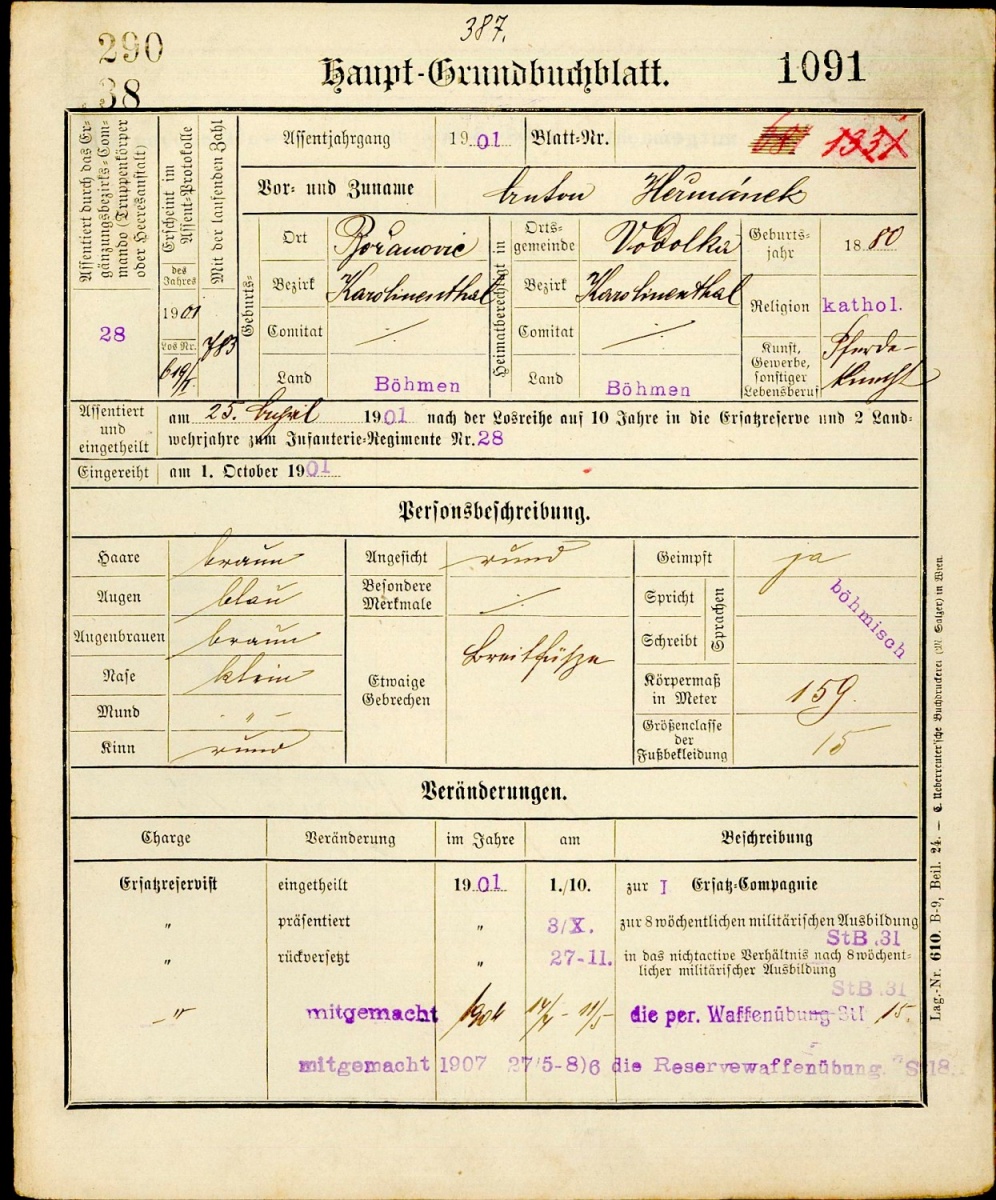 387.
290
38
Haupt-Grundbuchblatt.
1091
Assentiert durch das Ergänzungsbezirks-Commando (Truppenkörper oder Heeresanstalt)
28
Erscheint im Assent-Protokolle
des Jahres
1901
Los Nr.
619/I
Mit der laufenden Zahl
783
Assentjahrgang 1901 Blatt-Nr. 1331
Vor- und Zuname Anton Heřmánek
Geburts-
Ort
Bořanovic
Bezirk
Karolinenthal
Comitat
./.
Land
Böhmen
Heimatberechtigt in
Orts-
gemeinde
Vodolka
Bezirk
Karolinenthal
Comitat
./.
Land
Böhmen
Geburts-
jahr
1880
Religion
kathol.
Kunst,
Gewerbe,
sonstiger
Lebensberuf
Pferde-
knecht
Assentiert
und
eingetheilt
am 25. April 1901 nach der Losreihe auf 10 Jahre in die Ersatzreserve und 2 Land-
wehrjahre zum Infanterie-Regimente Nr. 28
Eingereiht am 1. October 1901
Personsbeschreibung.
Haare braun
Augen blau
Augenbrauen braun
Nase klein
Mund - " -
Kinn rund
Angesicht rund
Besondere
Merkmale
./.
Etwaige
Gebrechen
Breitfüße
Geimpft ja
Spricht
Schreibt
Sprachen
böhmisch
Körpermaß
in Meter
159.
Größenclasse
der
Fußbekleidung
15
Veränderungen.
Charge Veränderung im Jahre am Beschreibung
Ersatzreservist eingetheilt 1901 1./10. zur I Ersatz-Compagnie
" präsentiert " 3/X. zur 8 wöchentlichen militärischen Ausbildung
StB.31
" rückversetzt " 27-11. in das nichtactive Verhältnis nach 8 wöchent-
licher militärischer Ausbildung
StB.31
-"- mitgemacht 1904 14/4 - 11/5 die per. Waffenübung StI 15.
mitgemacht 1907 27/5-8)6 die Reservewaffenübung. St18.
Lag.-Nr. 610. B-9, Beil. 24. — C. Ueberreuter'sche Buchdruckerei (M. Salzer) in Wien.